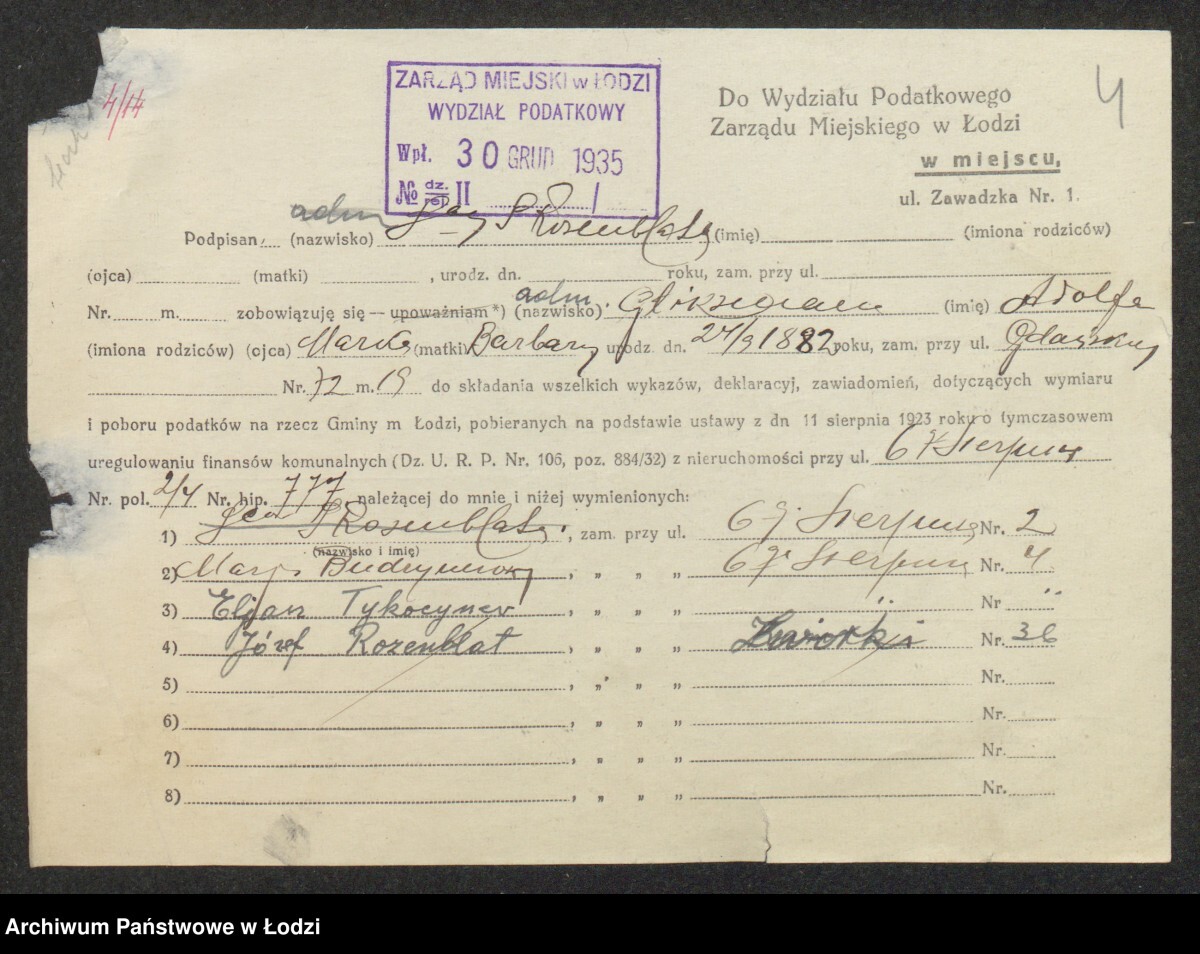 4/14
4
ZARZĄD MIEJSKI w ŁODZI
WYDZIAŁ PODATKOWY
Wpł. 30 GRUD 1935
№ dz./rep II /
Do Wydziału Podatkowego
Zarządu Miejskiego w Łodzi
w miejscu,
ul. Zawadzka Nr. 1.
adm
Podpisan (nazwisko) S Rosenblatt (imię) (imiona rodziców)
(ojca) (matki) , urodz. dn. roku, zam. przy ul.
adm.
Nr. m. zobowiązuję się — upoważniam *) (nazwisko) Gliksman (imię) Adolfa
(imiona rodziców) (ojca) Marka (matki) Barbary urodz. dn. 24/9 1882 roku, zam. przy ul. Gdańskiej
Nr. 72 m. 19 do składania wszelkich wykazów, deklaracyj, zawiadomień, dotyczących wymiaru
i poboru podatków na rzecz Gminy m Łodzi, pobieranych na podstawie ustawy z dn 11 sierpnia 1923 roku o tymczasowem
uregulowaniu finansów komunalnych (Dz. U. R. P. Nr. 106, poz. 884/32) z nieruchomości przy ul. 6 Sierpnia
Nr. pol. 2/4 Nr. hip. 777 należącej do mnie i niżej wymienionych:
1) S Rosenblatt, zam. przy ul. 6 Sierpnia Nr. 2
(nazwisko i imię)
2) , „ „ „ 6 Sierpnia Nr. 4
3) Eljasz Tykocyner , „ „ „ " Nr "
4) Józef Rozenblat , „ „ „ Żwirki Nr. 36
5) , „ „ „ Nr.
6) , „ „ „ Nr.
7) , „ „ „ Nr.
8) , „ „ „ Nr.
Archiwum Państwowe w Łodzi